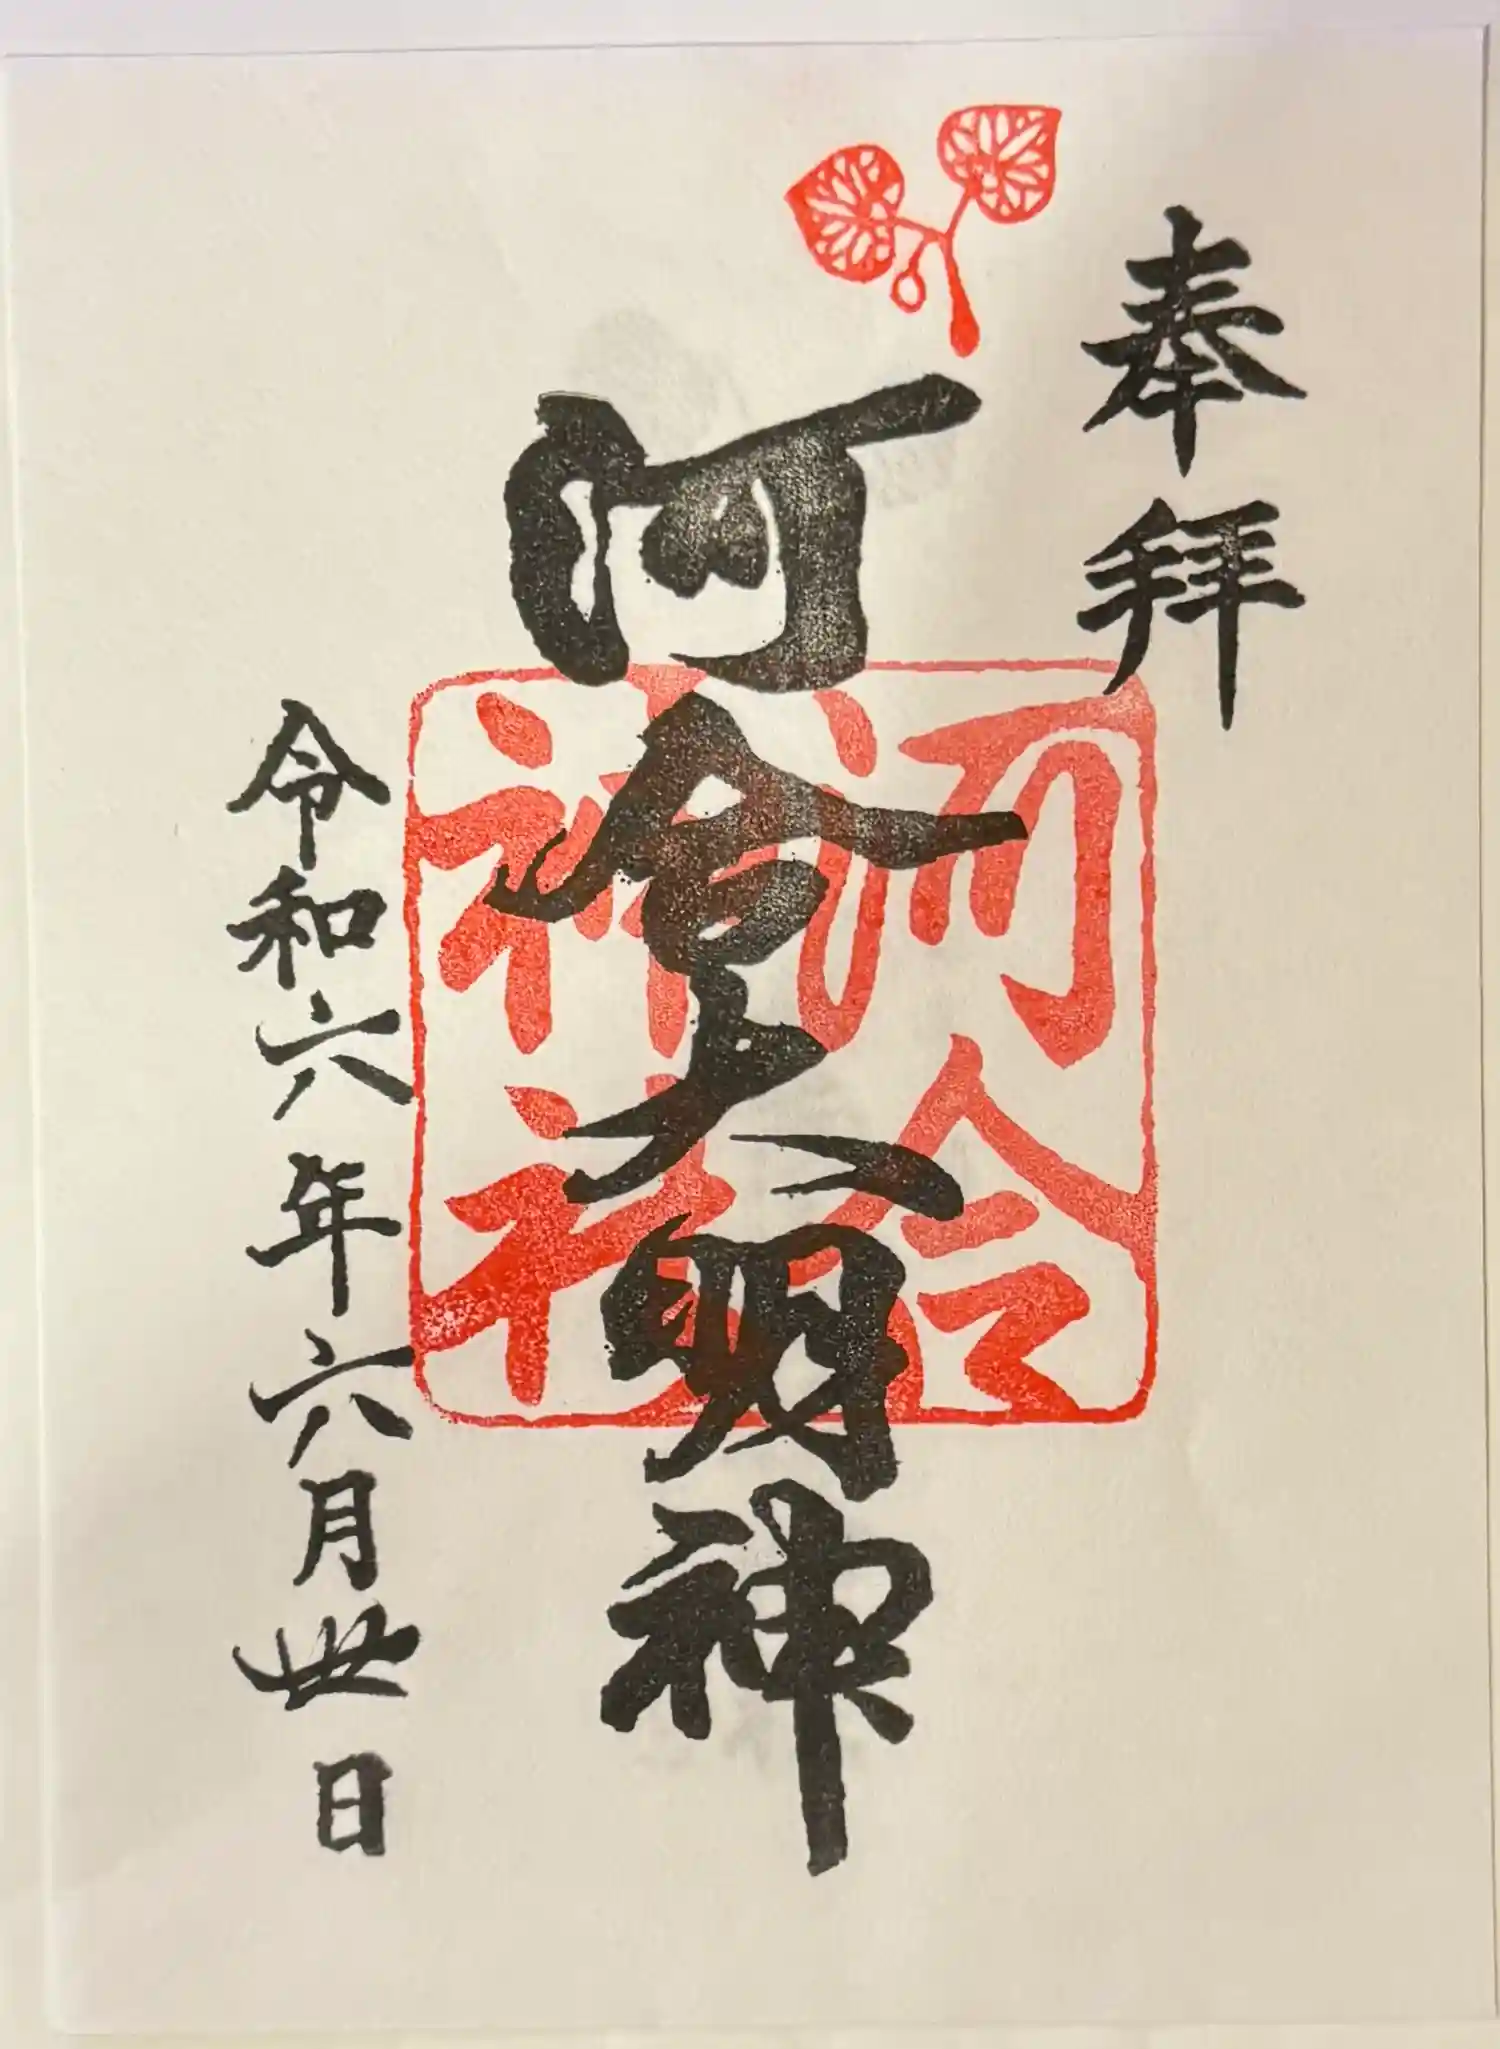 奉拝
河合大明神
河合
神社
令和六年六月丗日